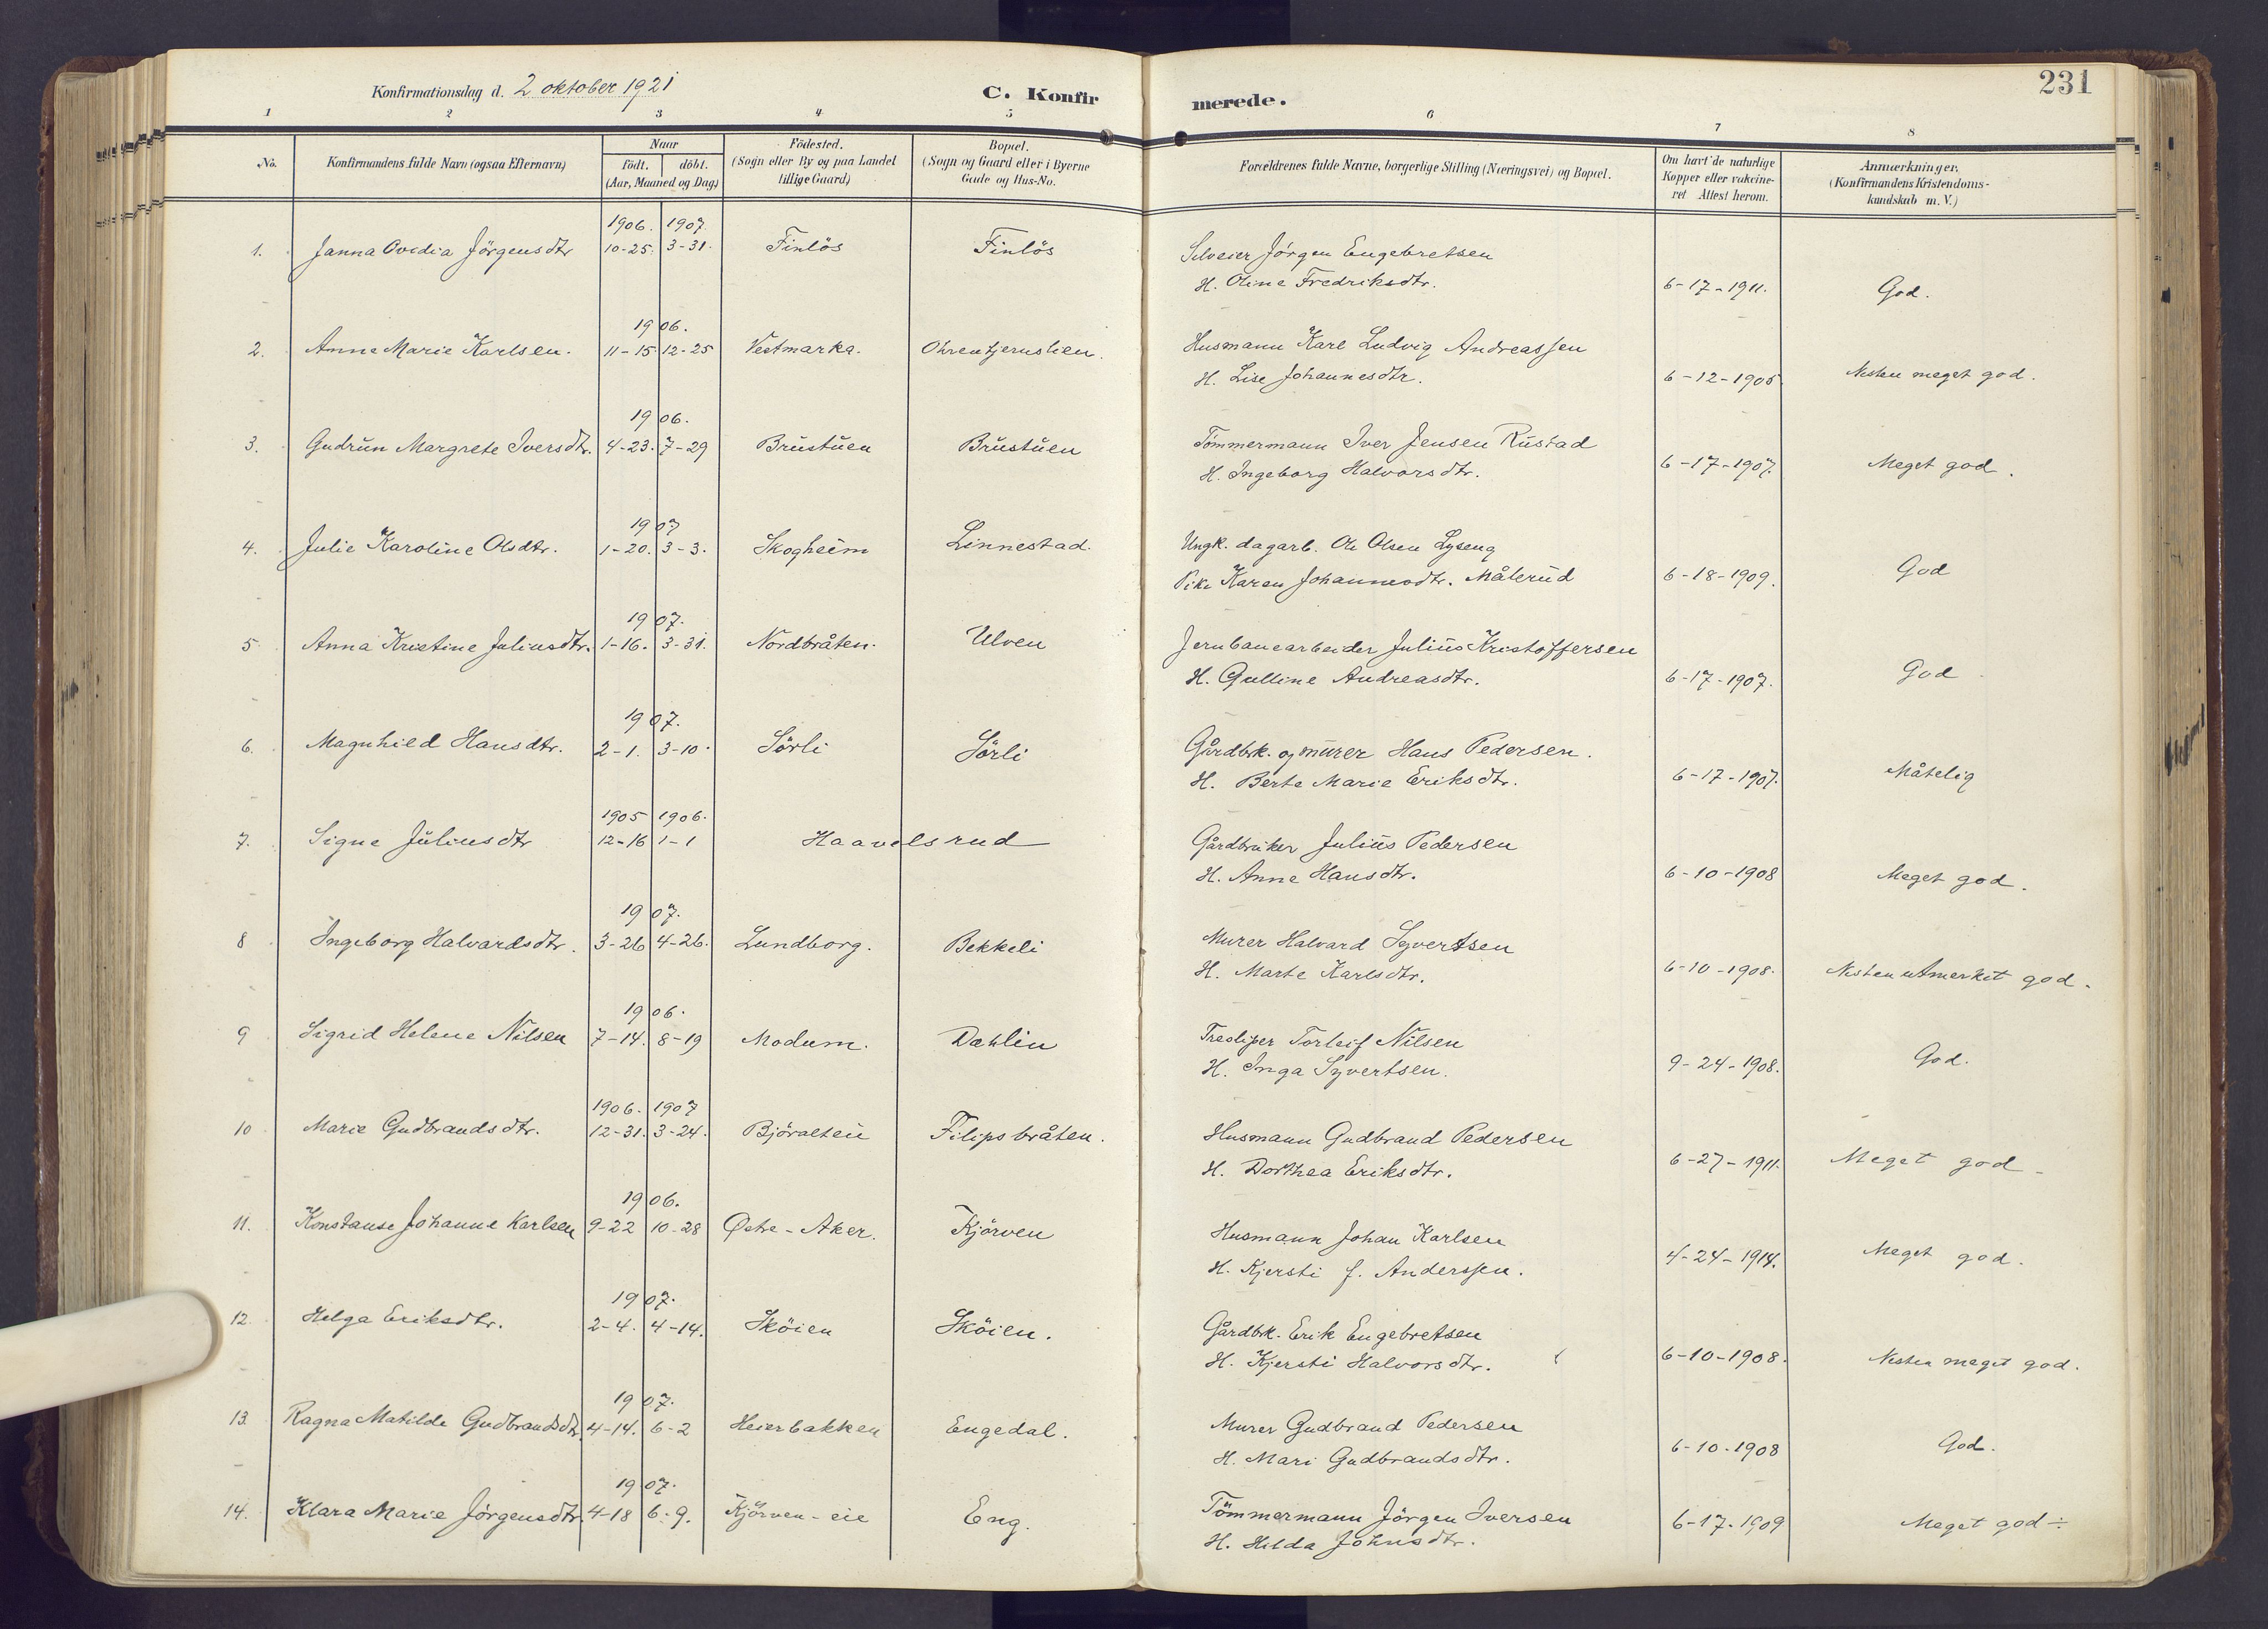 Konfirmationsdag d. 2 oktober 1921
C. Konfirmerede.
231
1 2 3 4 5 6 7 8
No. Konfirmandens fulde Navn (ogsaa Efternavn) Naar födt. döbt. (Aar, Maaned og Dag) Födested. (Sogn eller By og paa Landet tillige Gaard) Bopæl. (Sogn og Gaard eller i Byerne Gade og Hus-No. Forældrenes fulde Navne, borgerlige Stilling (Næringsvei) og Bopæl. Om havt de naturlige Kopper eller vakcineret Attest herom. Anmærkninger. (Konfirmandens Kristendomskundskab m. V.)
1906. 1907
1. Janna Ovidia Jörgensdtr 10-25. 3-31. Finlös Finlös Selveier Jörgen Engebretsen
H. Oline Fredriksdtr. 6-17-1911. God.
1906.
2. Anne Marie Karlsen. 11-15 12-25 Vestmarka. Husmann Karl Ludvig Andreassen
H. Lise Johannesdtr. 6-12-1905 Nesten meget god.
1906.
3. Gudrun Margrete Iversdtr. 4-23. 7-29 Brustuen Brustuen Tömmermann Iver Jensen Rustad
H. Ingeborg Halvorsdtr. 6-17-1907. Meget god.
1907
4. Julie Karoline Olsdtr. 1-20. 3-3. Skogheim Linnestad. Ungk. dagarb. Ole Olsen Lyseng
Pike Karen Johannesdtr. Målerud 6-18-1909. God
1907.
5 Anna Kristine Juliusdtr. 1-16. 3-31. Nordbråten. Ulven Jernbanearbeider Julius Kristoffersen
H. Gulline Andreasdtr. 6-17-1907. God
1907.
6. Magnhild Hansdtr. 2-1. 3-10. Sörli Sörli Gårdbrk. og murer Hans Pedersen.
H. Berte Marie Eriksdtr. 6-17-1907. Måtelig
1905 1906.
7. Signe Juliusdtr 12-16 1-1 Haavelsrud Gårdbruker Julius Pedersen
H. Anne Hansdtr. 6-10-1908 Meget god.
1907.
8 Ingeborg Halvardsdtr. 3-26 4-26. Lundborg. Bekkeli Murer Halvard Syvertsen
H. Marte Karlsdtr. 6-10-1908. Nesten utmerket god.
1906.
9 Sigrid Helene Nilsen 7-14. 8-19 Modum. Dæhlin Tresliper Torleif Nilsen
H. Inga Syvertsen. 9-24-1908. God.
1906. 1907
10 Marie Gudbrandsdtr. 12-31. 3-24. Filipsbråten. Husmann Gudbrand Pedersen
H. Dorthea Eriksdtr. 6-27-1911. Meget god
1906.
11. Konstanse Johanne Karlsen 9-22 10-28 Östre-Aker. Kjörven Husmann Johan Karlsen
H. Kjersti f. Anderssen. 4-24-1914. Meget god.
1907.
12. Helga Eriksdtr. 2-4. 4-14. Sköien Sköien. Gårdbrk. Erik Engebretsen
H. Kjersti Halvorsdtr. 6-10-1908. Nesten meget god.
1907.
13. Ragna Matilde Gudbrandsdtr. 4-14. 6-2 Heierbakken Engedal. Murer Gudbrand Pedersen
H. Mari Gudbrandsdtr. 6-10-1908 God.
1907.
14. Klara Marie Jörgensdtr. 4-18 6-9. Kjörven-eie Eng. Tömmermann Jörgen Iversen
H. Hilda Johnsdtr. 6-17-1909 Meget god ÷